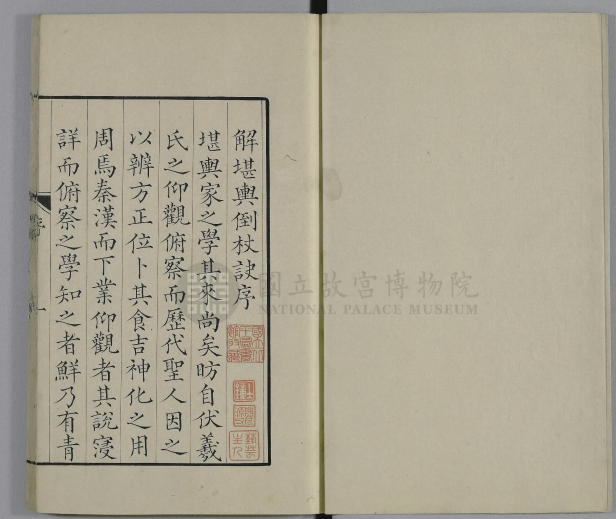 解堪輿倒杖訣序
堪輿家之學其來尚矣昉自伏羲
氏之仰觀俯察而歷代聖人因之
以辨方正位卜其食吉神化之用
周焉秦漢而下業仰觀者其說寖
詳而俯察之學知之者鮮乃有青
序
一
國立故宮博物院
NATIONAL PALACE MUSEUM